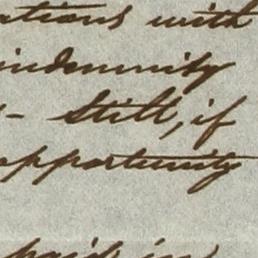 ations with
indemnity
- Still, if
opportunity
paid in